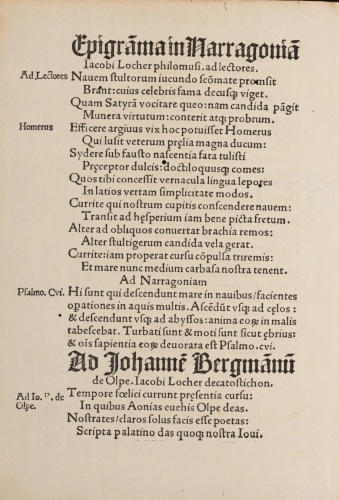 Epigrāma in Narragoniā
Iacobi Locher philomusi. ad lectores.
Ad Lectores
Nauem stultorum iucundo scōmate promsit
Brant: cuius celebris fama decusq; viget.
Quam Satyrā vocitare queo: nam candida pāgit
Munera virtutum: conterit atq; probrum.
Homerus
Efficere argiuus vix hoc potuisset Homerus
Qui lusit veterum pręlia magna ducum:
Sydere sub fausto nascentia fata tulisti
Pręceptor dulcis: doctiloquusq; comes:
Quos tibi concessit vernacula lingua lepores
In latios vertam simplicitate modos.
Currite qui nostrum cupitis conscendere nauem:
Transit ad hęsperium iam bene picta fretum.
Alter ad obliquos conuertat brachia remos:
Alter stultigerum candida vela gerat.
Currite: iam properat cursu cōpulsa triremis:
Et mare nunc medium carbasa nostra tenent.
Ad Narragoniam
Psalmo. Cvi.
Hi sunt qui descendunt mare in nauibus/facientes
opationes in aquis multis. Ascēdūt vsq; ad cęlos:
& descendunt vsq; ad abyssos: anima eoꝝ in malis
tabescebat. Turbati sunt & moti sunt sicut ebrius:
& oīs sapientia eoꝝ deuorata est Psalmo. cvi.
Ad Johannē Bergmānū
de Olpe. Iacobi Locher decatostichon.
Ad Io. B. de
Olpe.
Tempore fœlici currunt pręsentia cursu:
In quibus Aonias euehis Olpe deas.
Nostrates/claros solus facis esse poetas:
Scripta palatino das quoq; nostra Ioui.